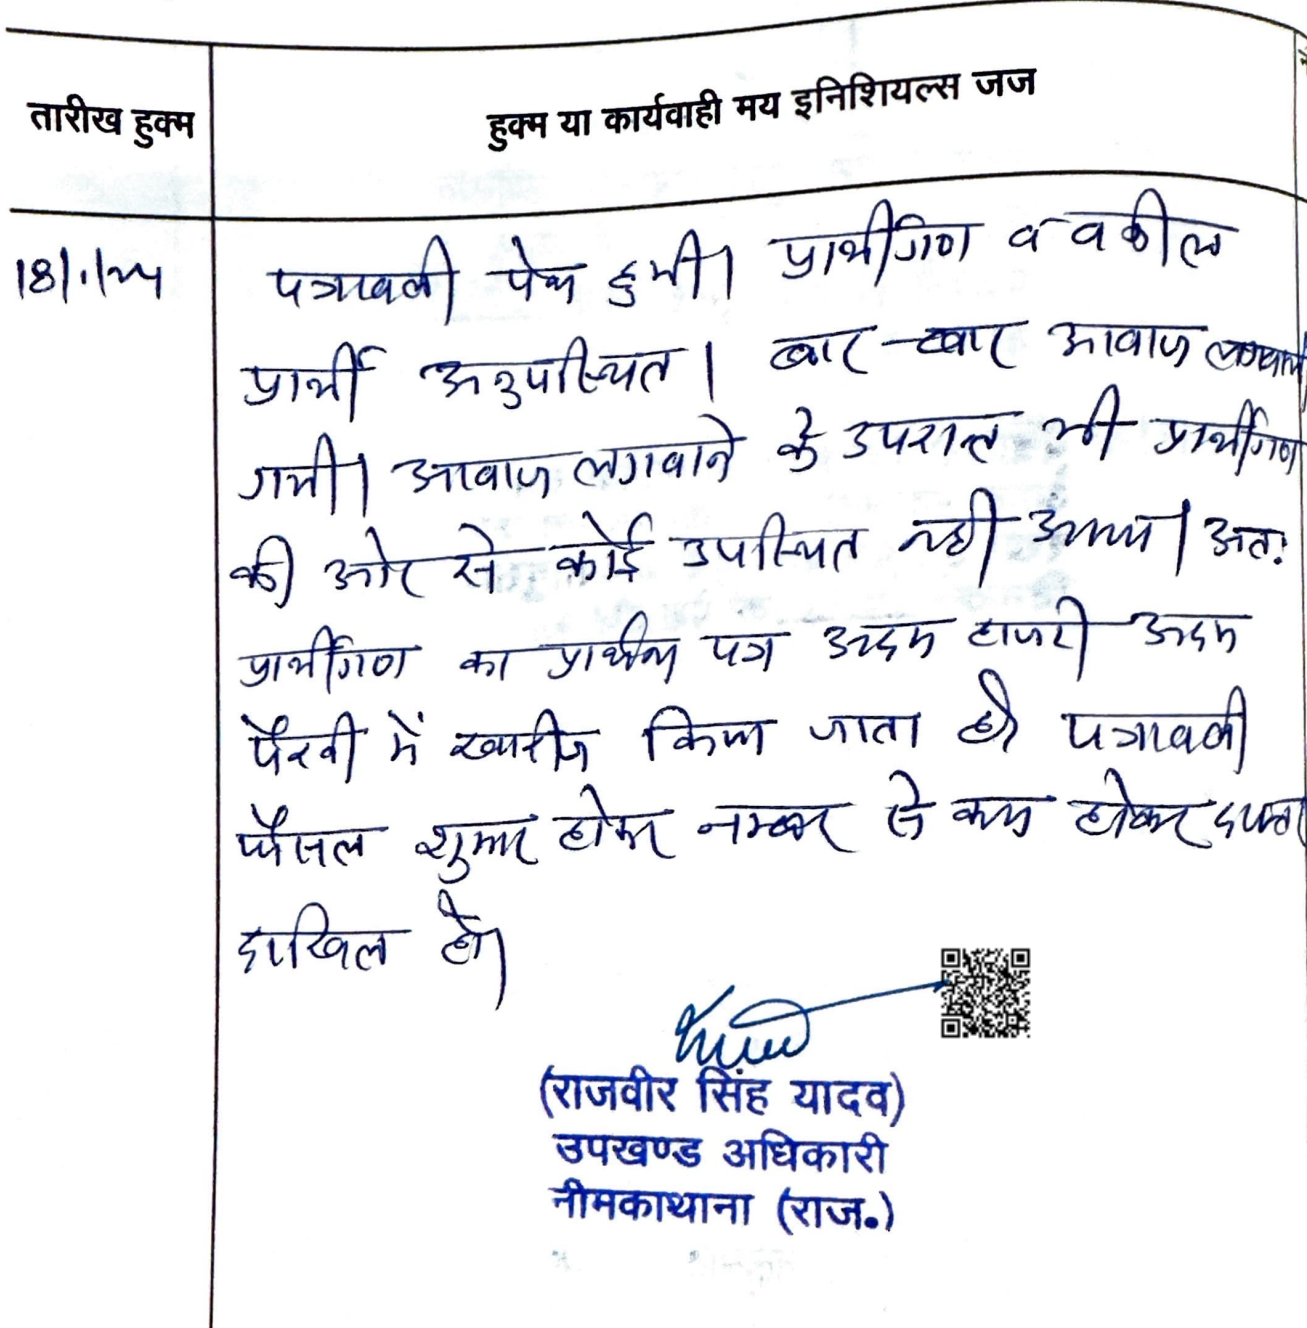 तारीख हुक्म
हुक्म या कार्यवाही मय इनिशियल्स जज
पत्रावली पेश हुयी। प्रार्थीगण व वकील
प्रार्थी अनुपस्थित। बार-बार आवाज लगवायी
गयी। आवाज लगवाने के उपरान्त भी प्रार्थीगण
की ओर से कोई उपस्थित नही आया। अतः
प्रार्थीगण का प्रार्थना पत्र अदम हाजरी अदम
पैरवी में खारीज किया जाता है। पत्रावली
फैसल शुमार होकर नम्बर से कम होकर दफ्तर
दाखिल हो।
(राजवीर सिंह यादव)
उपखण्ड अधिकारी
नीमकाथाना (राज.)